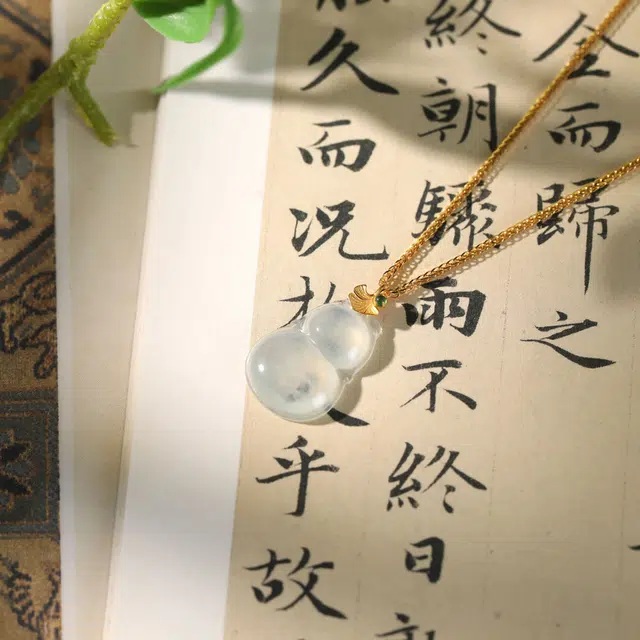 全而歸之
終朝驟雨不終日
久而況乎故